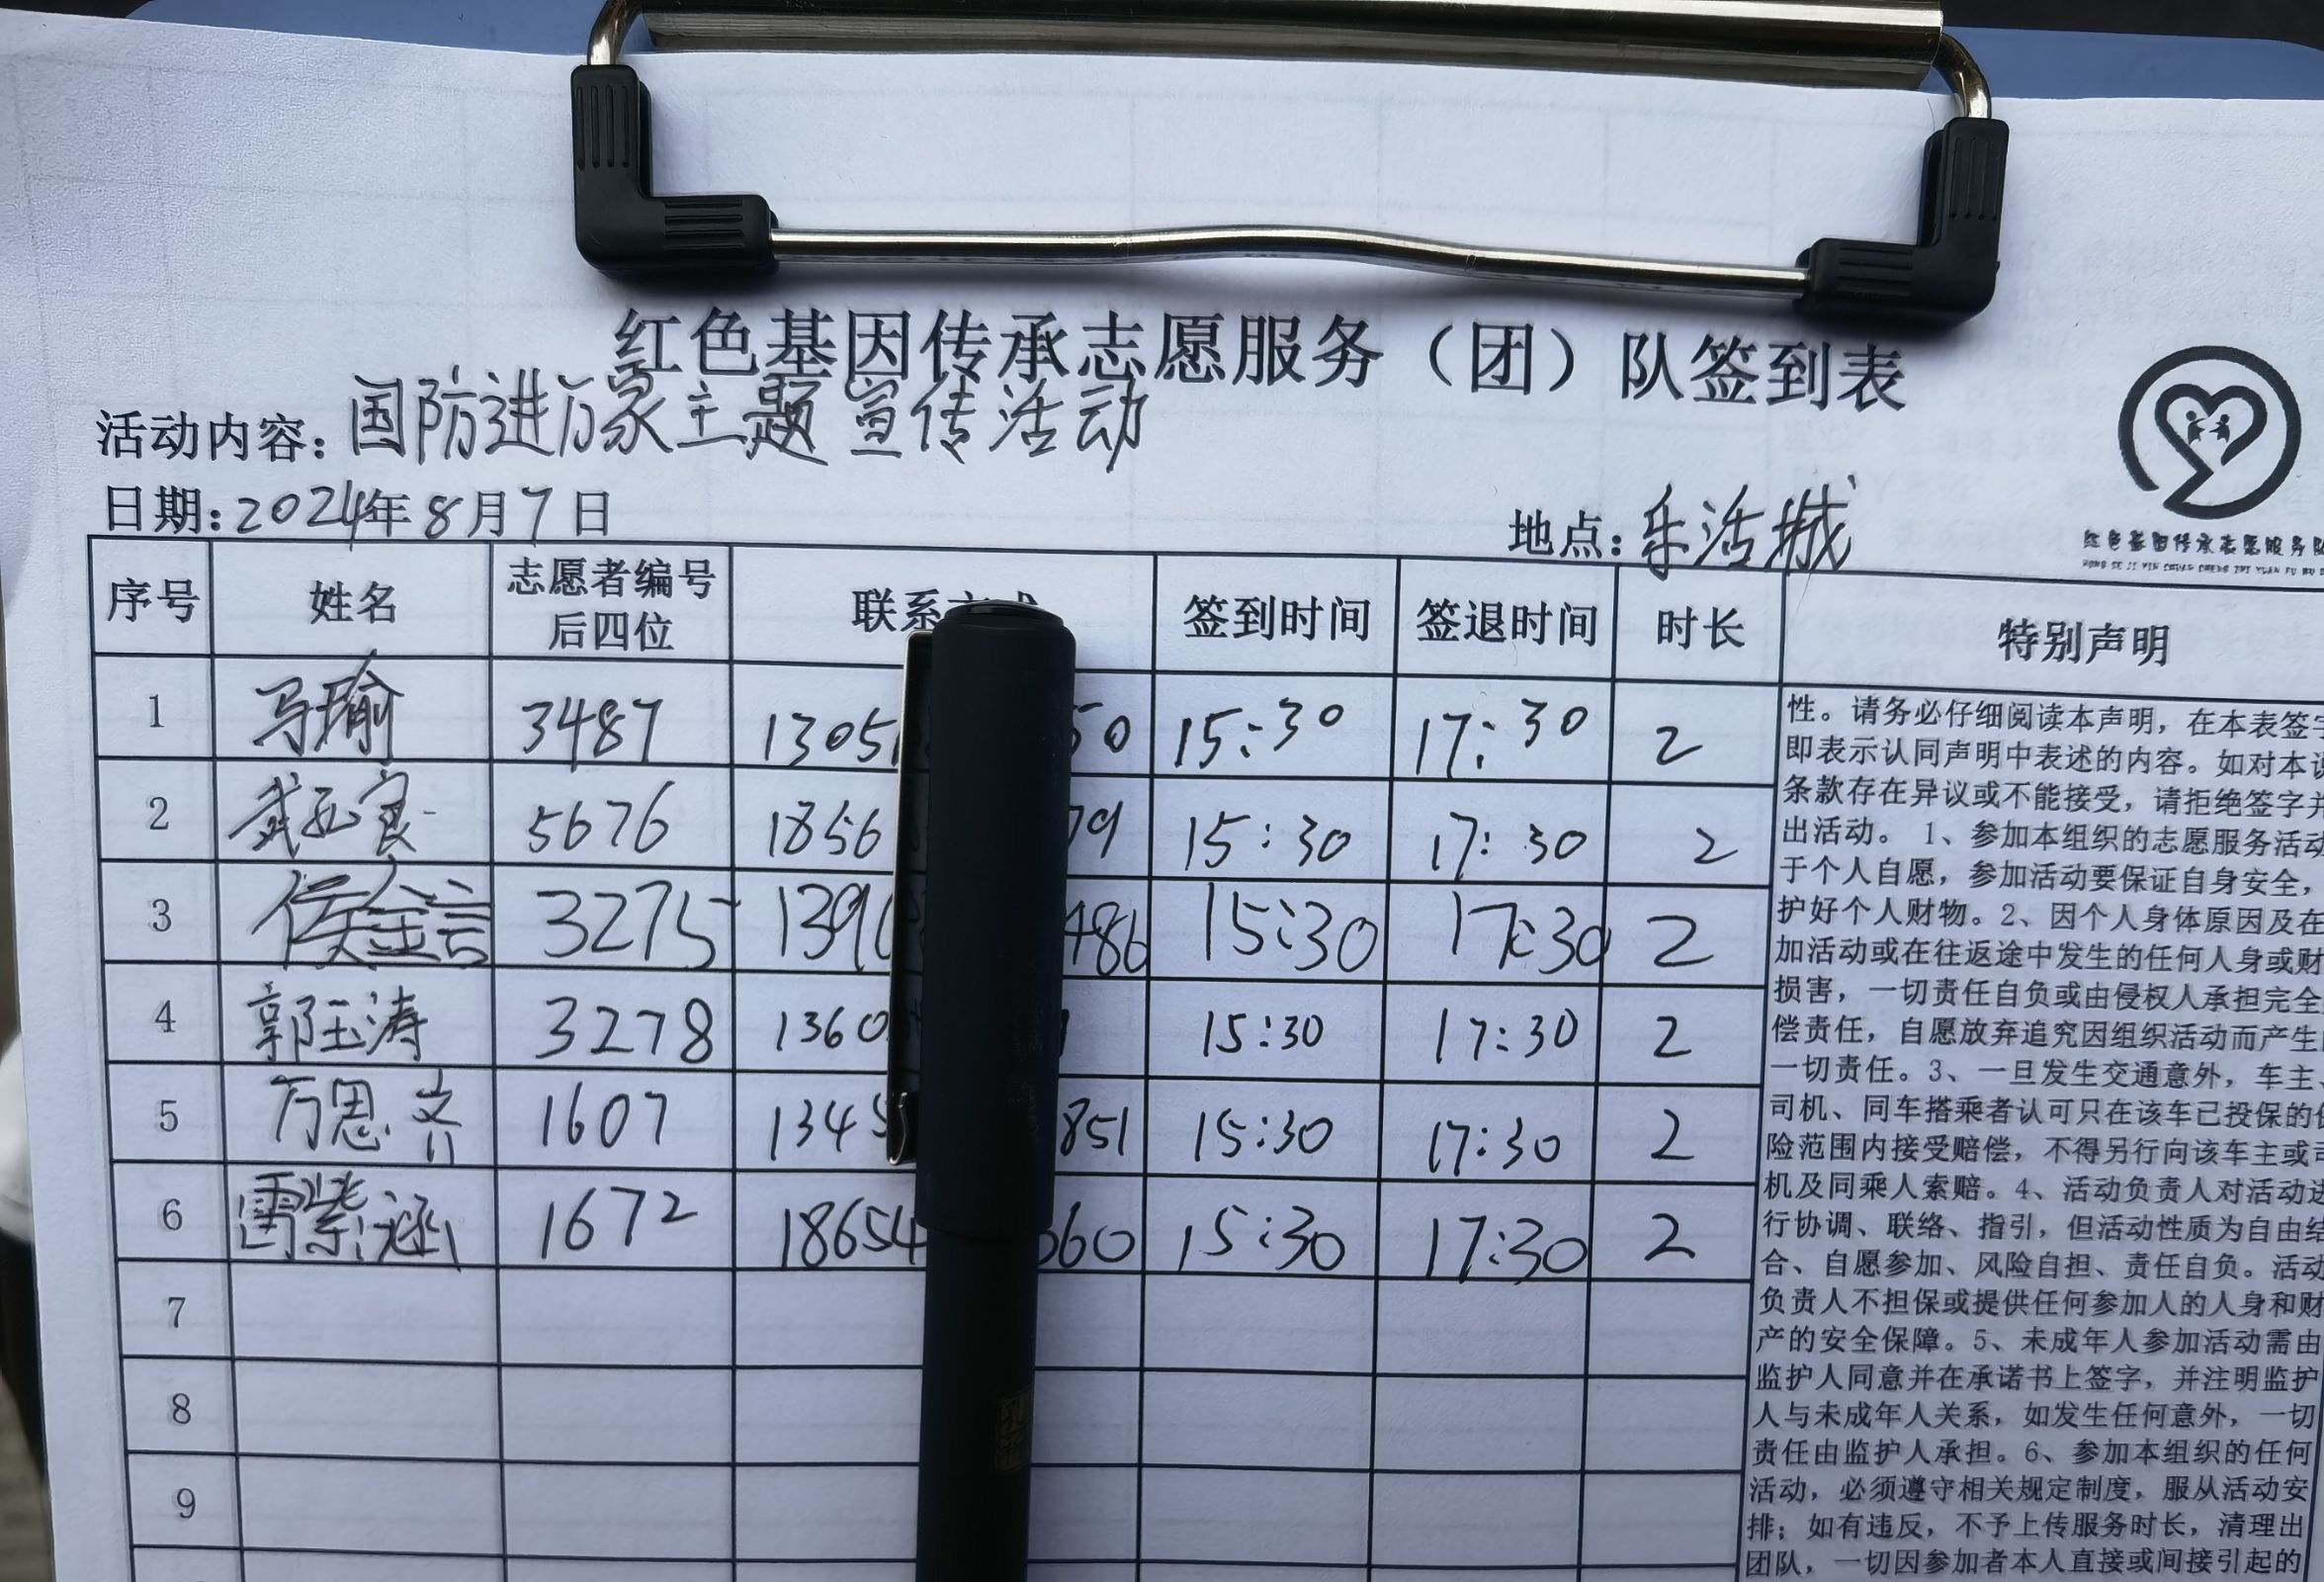 红色基因传承志愿服务（团）队签到表
活动内容：国防进万家主题宣传活动
日期：2024年8月7日
地点：乐活城
红色基因传承志愿服务队
序号 姓名 志愿者编号后四位 联系方式 签到时间 签退时间 时长 特别声明
1 马瑜 3487 1305 50 15:30 17:30 2
2 武亚良 5676 1856 79 15:30 17:30 2
3 侯金言 3275 139 486 15:30 17:30 2
4 郭玉涛 3278 1360 15:30 17:30 2
5 万思齐 1607 1345 851 15:30 17:30 2
6 雷紫涵 1672 18654 660 15:30 17:30 2
7
8
9
性。请务必仔细阅读本声明，在本表签字
即表示认同声明中表述的内容。如对本
条款存在异议或不能接受，请拒绝签字并
出活动。1、参加本组织的志愿服务活动
于个人自愿，参加活动要保证自身安全，
护好个人财物。2、因个人身体原因及在
加活动或在往返途中发生的任何人身或财
损害，一切责任自负或由侵权人承担完全
偿责任，自愿放弃追究因组织活动而产生
一切责任。3、一旦发生交通意外，车主、
司机、同车搭乘者认可只在该车已投保的
险范围内接受赔偿，不得另行向该车主或司
机及同乘人索赔。4、活动负责人对活动进
行协调、联络、指引，但活动性质为自由结
合、自愿参加、风险自担、责任自负。活动
负责人不担保或提供任何参加人的人身和财
产的安全保障。5、未成年人参加活动需由
监护人同意并在承诺书上签字，并注明监护
人与未成年人关系，如发生任何意外，一切
责任由监护人承担。6、参加本组织的任何
活动，必须遵守相关规定制度，服从活动安
排；如有违反，不予上传服务时长，清理出
团队，一切因参加者本人直接或间接引起的